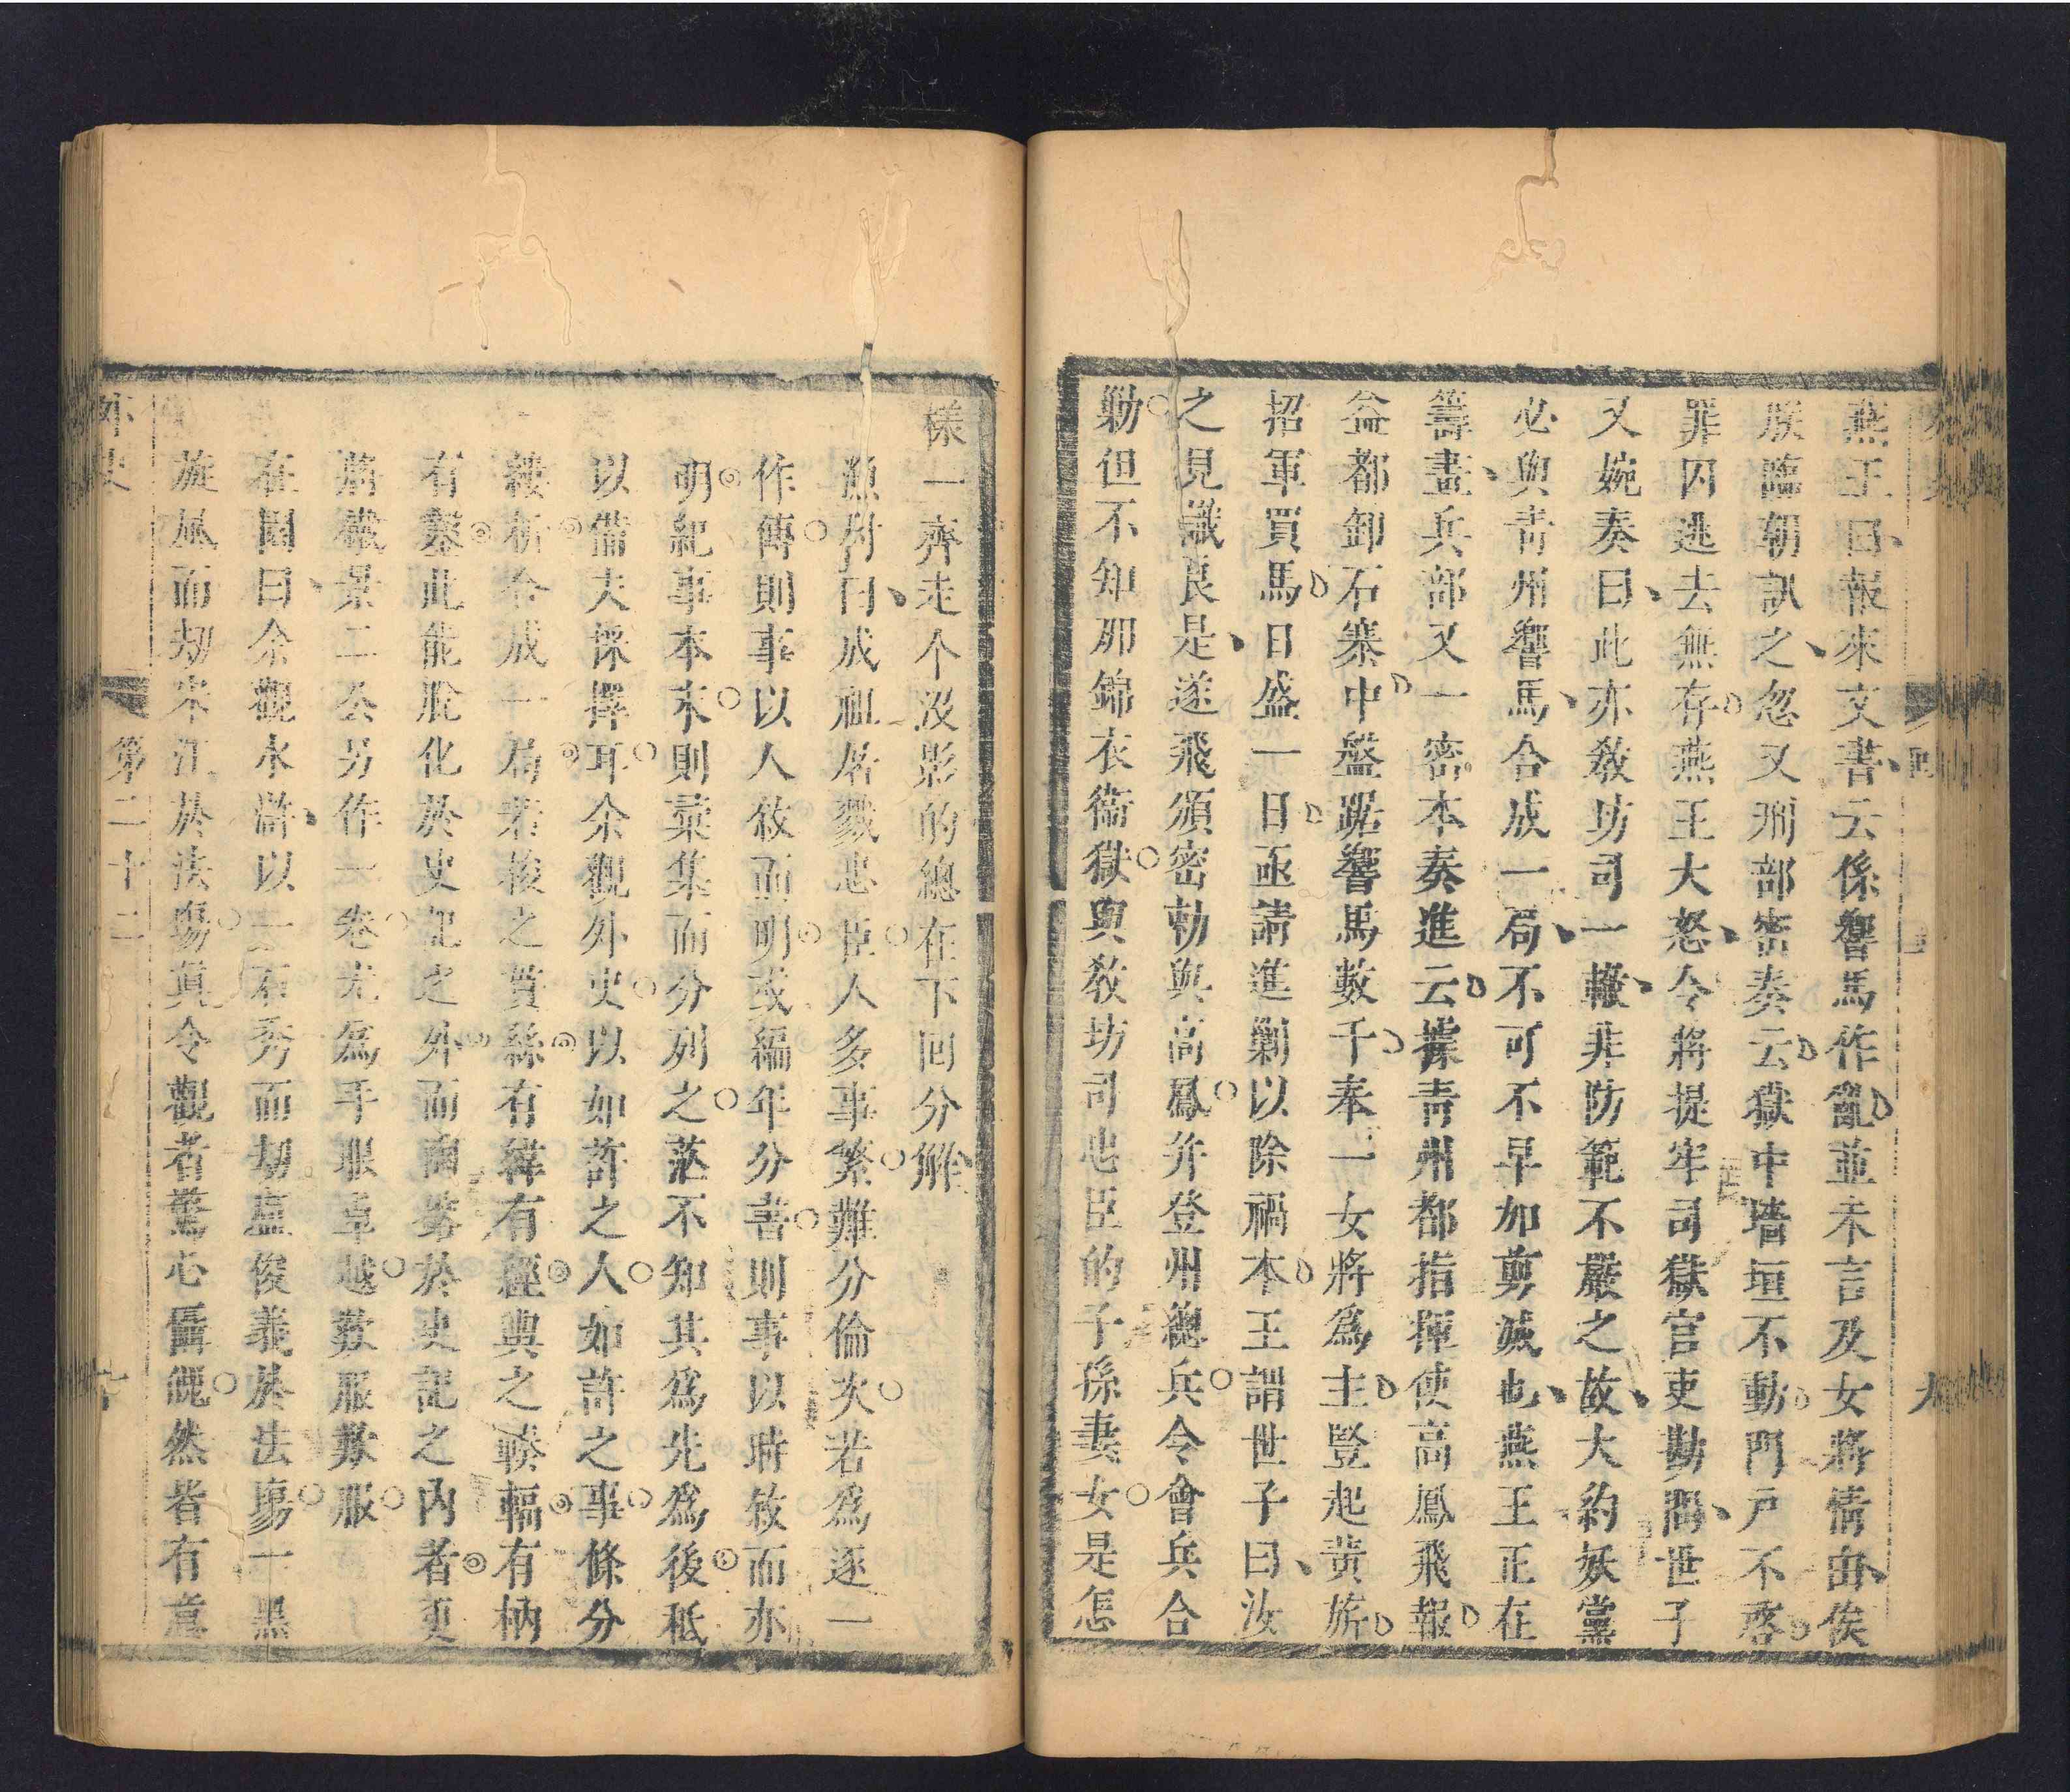 燕王曰報來文書云係響馬作亂並未言及女將情由俟
族臨朝訊之忽又刑部密奏云獄中墻垣不動門戸不啓
罪囚逃去無存燕王大怒令將提牢司獄官吏勘問世子
又婉奏曰此亦教坊司一轍非防範不嚴之故大約妖黨
必與青州響馬合成一局不可不早加剪滅也燕王正在
籌畫兵部又一密本奏進云據青州都指揮使高鳳飛報
益都卸石寨中盤踞響馬數千奉一女將爲主豎起黃旂
招軍買馬日盛一日亟請進剿以除禍本王謂世子曰汝
之見識良是遂飛頒密勅與高鳳并登州總兵令會兵合
勦但不知那錦衣衞獄與教坊司忠臣的子孫妻女是怎
樣一齊走个沒影的總在下回分觧
曰成祖屠戮忠臣人多事繁難分倫次若爲逐一
作傳則事以人敘而明或編年分書則事以時敘而亦
明紀事本末則彙集而分列之茫不知其爲先爲後秪
以備夫採擇耳余觀外史以如許之人如許之事條分
縷析合成一局若梭之貫絲有緯有經與之輳輻有柄
有鑿此能脫化於史記之外而陶鎔於史記之內者更
將鐵景二公另作一卷尤爲手眼卓越歎服歎服
在園曰余觀水滸以一石秀而刼盧俊義於法塲一黑
旋風而刼宋江於法塲眞令觀者驚心
然者有意
外史
第二十二
九